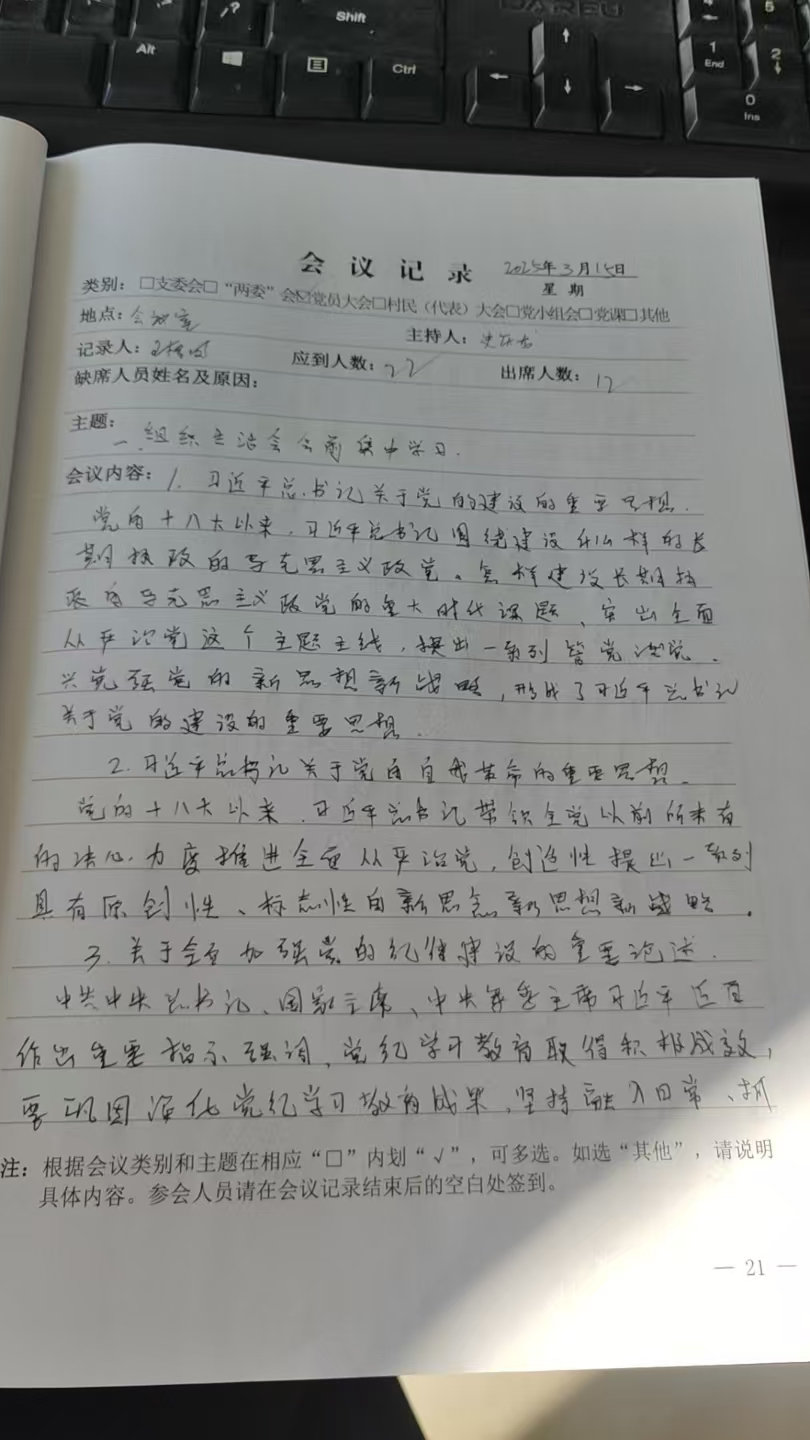 DAREU
Shift
Alt
Ctrl
1
End
2
5
0
Ins
会议记录 2025年3月15日
星期
类别：□支委会□“两委”会☑党员大会□村民（代表）大会□党小组会□党课□其他
地点：会议室 主持人：
记录人： 应到人数：22 出席人数：17
缺席人员姓名及原因：
主题：
一.组织生活会会前集中学习.
会议内容：1. 习近平总书记关于党的建设的重要思想.
党的十八大以来，习近平总书记围绕建设什么样的长
期执政的马克思主义政党、怎样建设长期执
政的马克思主义政党的重大时代课题，突出全面
从严治党这个主题主线，提出一系列管党治党、
兴党强党的新思想新战略，形成了习近平总书记
关于党的建设的重要思想.
2. 习近平总书记关于党的自我革命的重要思想.
党的十八大以来，习近平总书记带领全党以前所未有
的决心力度推进全面从严治党，创造性提出一系列
具有原创性、标志性的新理念新思想新战略.
3. 关于全面加强党的纪律建设的重要论述.
中共中央总书记、国家主席、中央军委主席习近平近日
作出重要指示强调，党纪学习教育取得积极成效，
要巩固深化党纪学习教育成果，坚持融入日常、抓
注：根据会议类别和主题在相应“□”内划“√”，可多选。如选“其他”，请说明
具体内容。参会人员请在会议记录结束后的空白处签到。
— 21 —